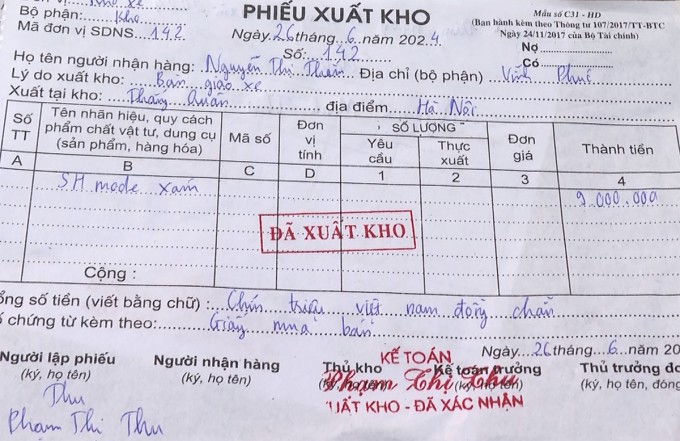 Bộ phận: Kho
Mã đơn vị SDNS: 142
PHIẾU XUẤT KHO
Ngày 26 tháng 6 năm 2024
Số: 142
Mẫu số C31 - HD
(Ban hành kèm theo Thông tư 107/2017/TT-BTC
Ngày 24/11/2017 của Bộ Tài chính)
Nợ
Có
Họ tên người nhận hàng: Nguyễn Thị Địa chỉ (bộ phận) Vĩnh Phúc
Lý do xuất kho: Bàn giao xe
Xuất tại kho: Thắng Quân địa điểm Hà Nội
Số TT Tên nhãn hiệu, quy cách phẩm chất vật tư, dung cụ (sản phẩm, hàng hóa) Mã số Đơn vị tính SỐ LƯỢNG Yêu cầu Thực xuất Đơn giá Thành tiền
A B C D 1 2 3 4
SH mode xám 9 000.000
ĐÃ XUẤT KHO
Cộng :
ổng số tiền (viết bằng chữ) : Chín triệu việt nam đồng chẵn
ố chứng từ kèm theo: Giấy mua bán
Ngày 26 tháng 6 năm 20
Người lập phiếu Người nhận hàng Thủ kho Kế toán trưởng Thủ trưởng đơ
(ký, họ tên) (ký, họ tên) (ký, họ tên) (ký, họ tên) (ký, họ tên, đóng
KẾ TOÁN
Phạm Thị Thu
UẤT KHO - ĐÃ XÁC NHẬN
Thu
Phạm Thị Thu